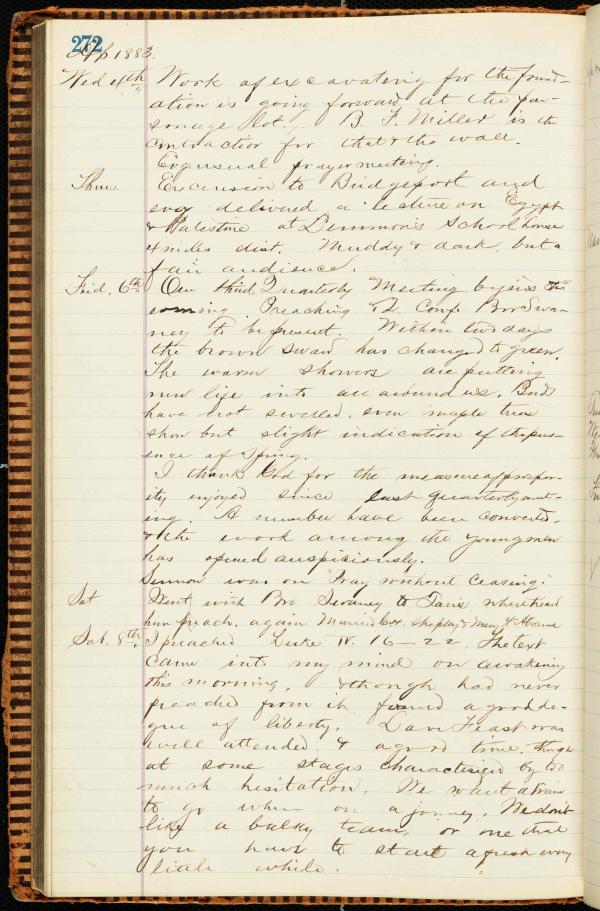 272
Apl 1883.
Wed 4th Work of excavating for the found-
ation is going forward at the par-
sonage lot. B. F. Miller is the
contractor for that & the wall.
Evg usual prayer meeting.
Thur. Excursion to Bridgeport and
evg delivered a lecture on Egypt
& Palestine at Demmon's School house
4 miles dist. Muddy & dark, but a
fair audience.
Frid. 6th Our third Quarterly Meeting begins this
evening. Preaching & Q. Conf. Bro Swa-
ney to be present. Within two days
the brown sward has changed to green.
The warm showers are putting
new life into all around us. Buds
have not swelled, even maple trees
show but slight indication of the pres-
ence of Spring.
I thank God for the measure of prosper-
ity enjoyed since last quarterly meet-
ing. A number have been converted,
& the work among the young men
has opened auspiciously.
Sermon was on "Pray without ceasing."
Sat Went with Bro Swaney to Paris where heard
him preach, again Married
Sab. 8th, I preached Luke IV. 16-22. The text
came into my mind on awakening
this morning, & though had never
preached from it found a good de-
gree of liberty. Love Feast was
well attended & a good time, though
at some stages characterized by too
much hesitation. We want a train
to go when on a journey. We don't
like a balky team, or one that
you have to start afresh every
little while.